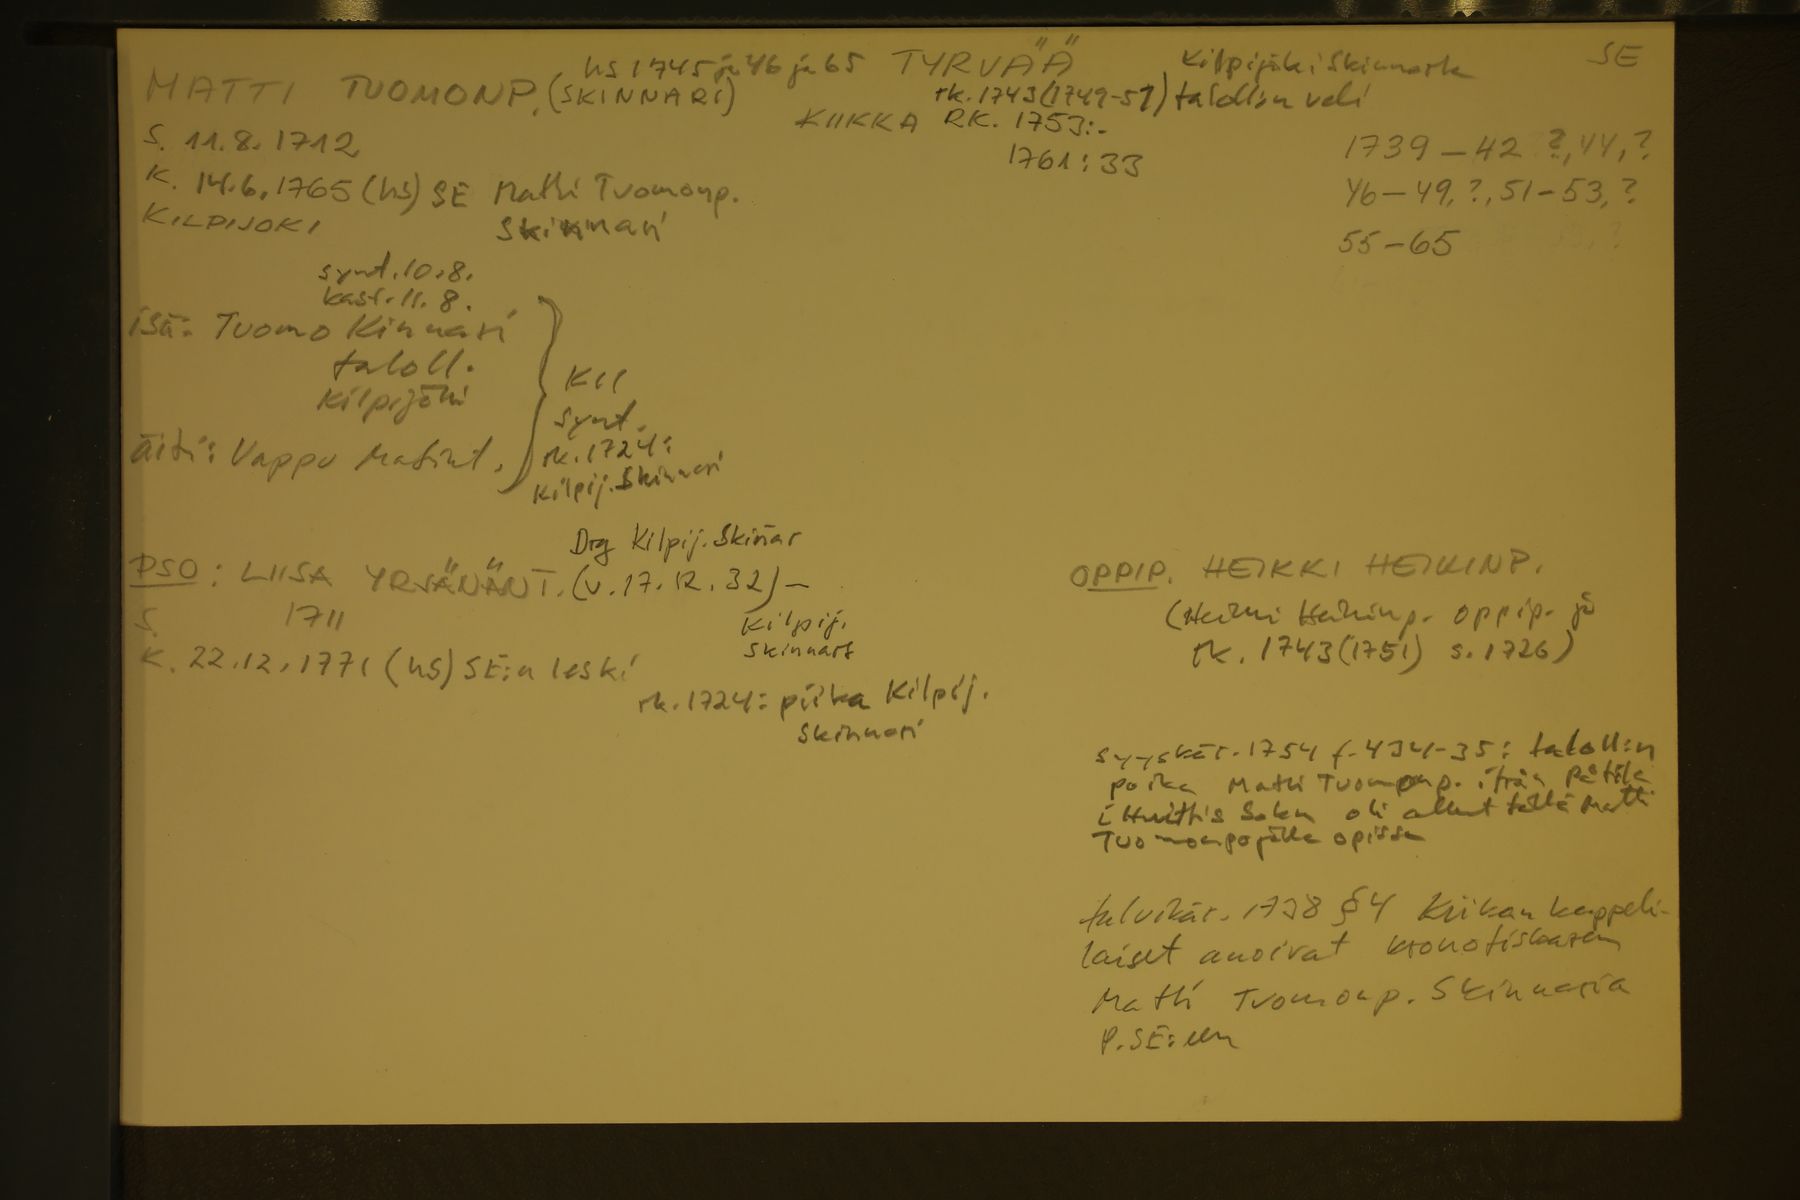 hs 1745 ja 46 ja 65 TYRVÄÄ Kilpijoki Skinnarla SE
MATTI TUOMONP. (SKINNARI) rk. 1743(1749-51) taloll:n veli
KIIKKA RK. 1753:-
1761:33
S. 11.8.1712
K. 14.6.1765 (hs) SE Matti Tuomonp.
KILPIJOKI Skinnari
1739-42 ?, 44, ?
46-49, ?, 51-53, ?
55-65
synt. 10.8.
kast. 11.8.
isä: Tuomo Kinnari
taloll.
Kilpijoki
äiti: Vappu Matint.
KII
synt.
rk. 1724:
Kilpij. Skinnari
Drg Kilpij. Skinar
PSO: LIISA YRJÄNÄNT. (v. 17.12.32) -
Kilpij.
Skinnari
S. 1711
K. 22.12.1771 (hs) SE:n leski
rk. 1724: piika Kilpij.
Skinnari
OPPIP. HEIKKI HEIKINP.
(Heikki Heikinp. oppip. jo
rk. 1743(1751) s. 1726)
syyskär. 1754 f. 434-35: taloll:n
poika Matti Tuomonp. ifrån
i Huittis Sokn oli ollut tällä Matti
Tuomonpojalla opissa
talvikär. 1738 § 4 Kiikan kappeli-
laiset anoivat
Matti Tuomonp. Skinnaria
P.SE:een